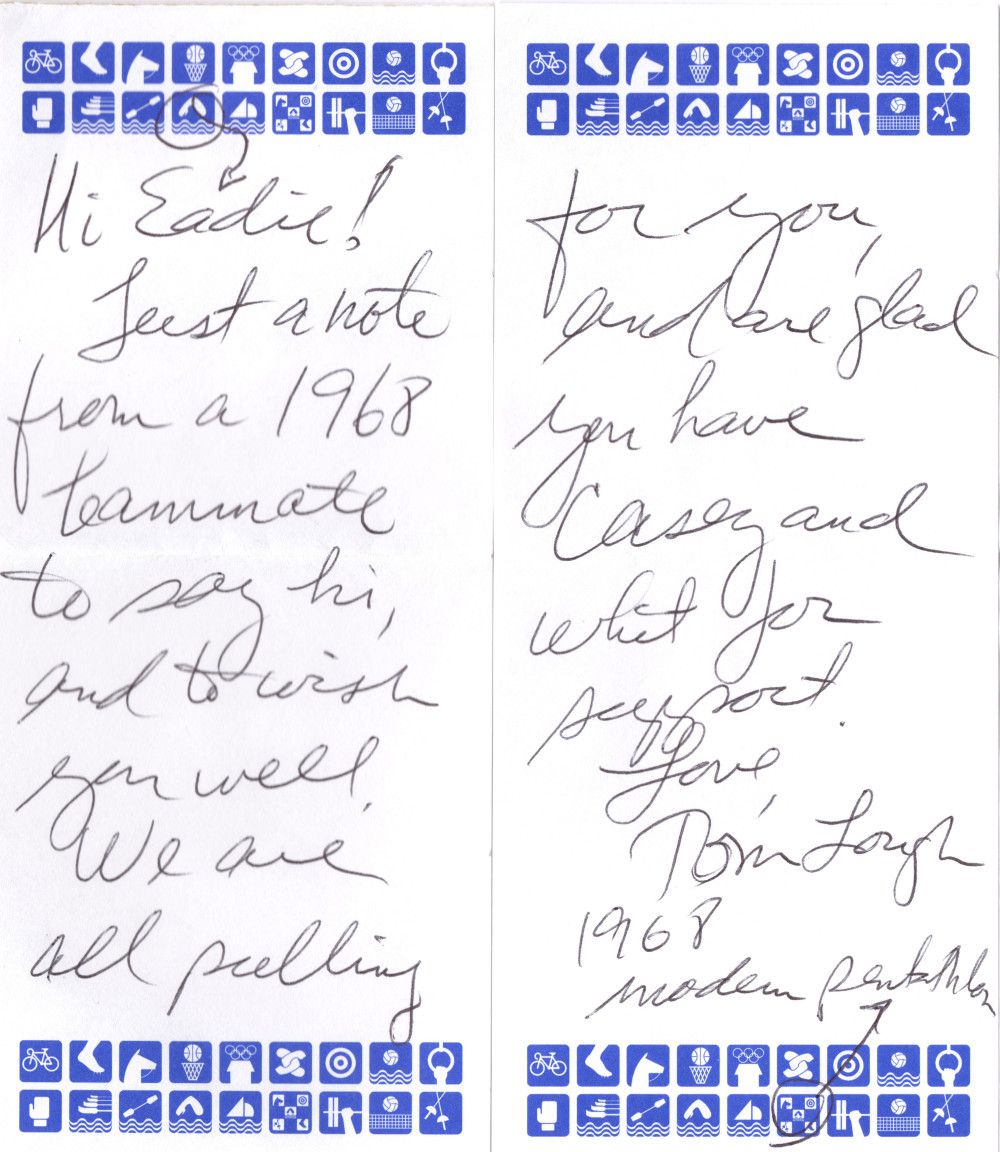 Hi Eadie!
Just a note
from a 1968
teammate
to say hi,
and to wish
you well.
We are
all pulling
for you,
and are glad
you have
Casey and
whit for
support.
Love,
Tom Lough
1968
modern pentathlon